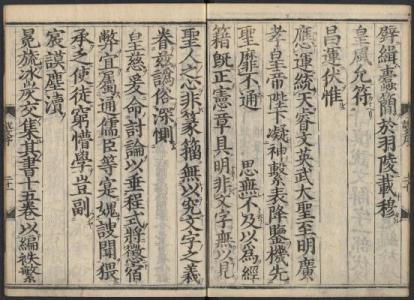 壁緝蠹簡於羽陵載穆
皇風允符
昌運伏惟
應運統天睿文英武大聖至明廣
孝皇帝陛下凝神繫表降鑒機先
聖靡不通 思無不及以為經
籍旣正憲章具明非文字無以見
聖人之心非篆籀無以究文字之義
眷茲譌俗深惻
皇慈爰命討論以垂程式將懲宿
弊宜屬通儒臣等寔媿謏聞猥
承乏使徒窮懵學豈副
宸謨塵瀆
冕旒冰炭交集其書十五卷以編帙繁